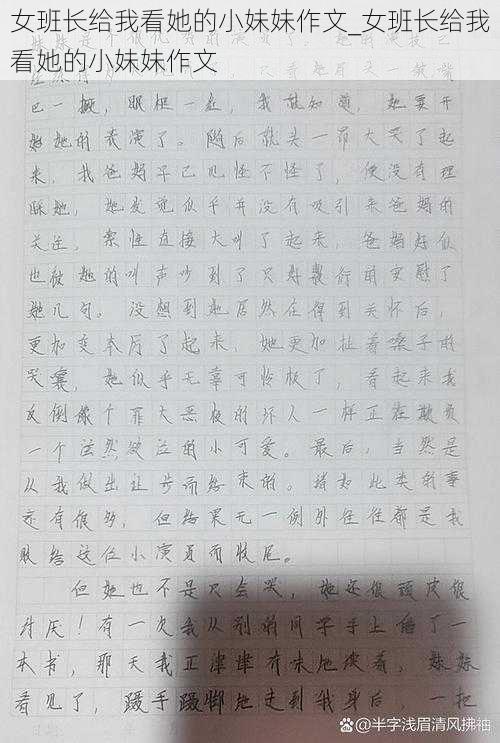 女班长给我看她的小妹妹作文_女班长给我
看她的小妹妹作文
巴一撅，眼框一红，我就知道，她要开
始她的表演了。随后就头一昂大哭了起
来，我爸妈早已见怪不怪了，便没有理
睬她，她发觉似乎并没有吸引来爸妈的
关注，索性直接大叫了起来，爸妈好似
也被她的叫声吵到了只好敷衍的安慰了
她几句。没想到她居然在得到关怀后，
更加变本厉了起来，她更加扯着嗓子的
哭嚷，她似乎无辜可怜极了，看起来我
反倒像个罪大恶极的坏人一样正在欺负
一个泫然欲泣的小可爱。最后，当然是
从我做出让步而结束的。诸如此类的事
还有很多，但结果无一例外往往都是我
服给这位小演员而收尾。
但她也不是只会哭，她还很顽皮很
讨厌！有一次我从别的同学手上借了一
本书，那天我正津津有味地读着，妹妹
看见了，蹑手蹑脚地走到我身后，一把
半字浅眉清风拂袖